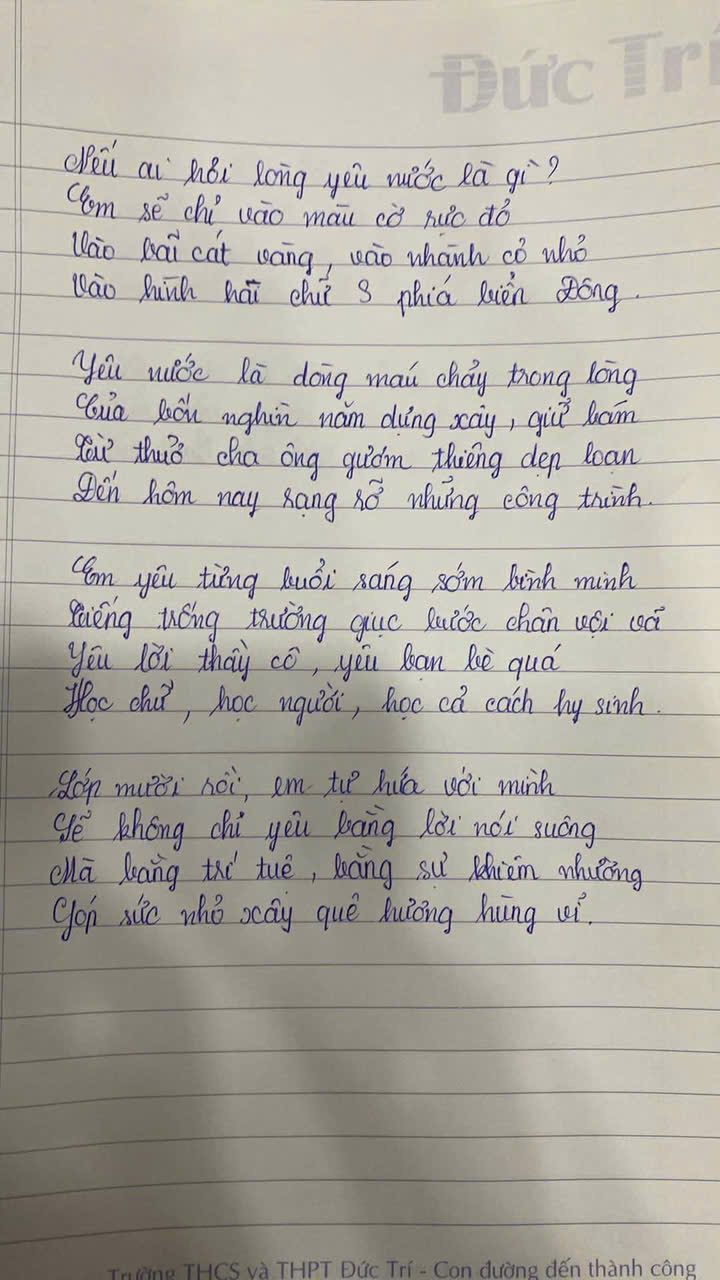 Đức Trí
Nếu ai hỏi lòng yêu nước là gì?
Em sẽ chỉ vào màu cờ rực đỏ
Vào bãi cát vàng, vào nhành cỏ nhỏ
Vào hình hài chữ S phía biển Đông.
Yêu nước là dòng máu chảy trong lòng
Của bốn nghìn năm dựng xây, giữ bám
Từ thuở cha ông gươm thiêng dẹp loạn
Đến hôm nay rạng rỡ những công trình.
Em yêu từng buổi sáng sớm bình minh
Tiếng trống trường giục bước chân vội vã
Yêu lời thầy cô, yêu bạn bè quá
Học chữ, học người, học cả cách hy sinh.
Lớp mười rồi, em tự hứa với mình
Sẽ không chỉ yêu bằng lời nói suông
Mà bằng trí tuệ, bằng sự khiêm nhường
Góp sức nhỏ xây quê hương hùng vĩ.
Trường THCS và THPT Đức Trí - Con đường đến thành công